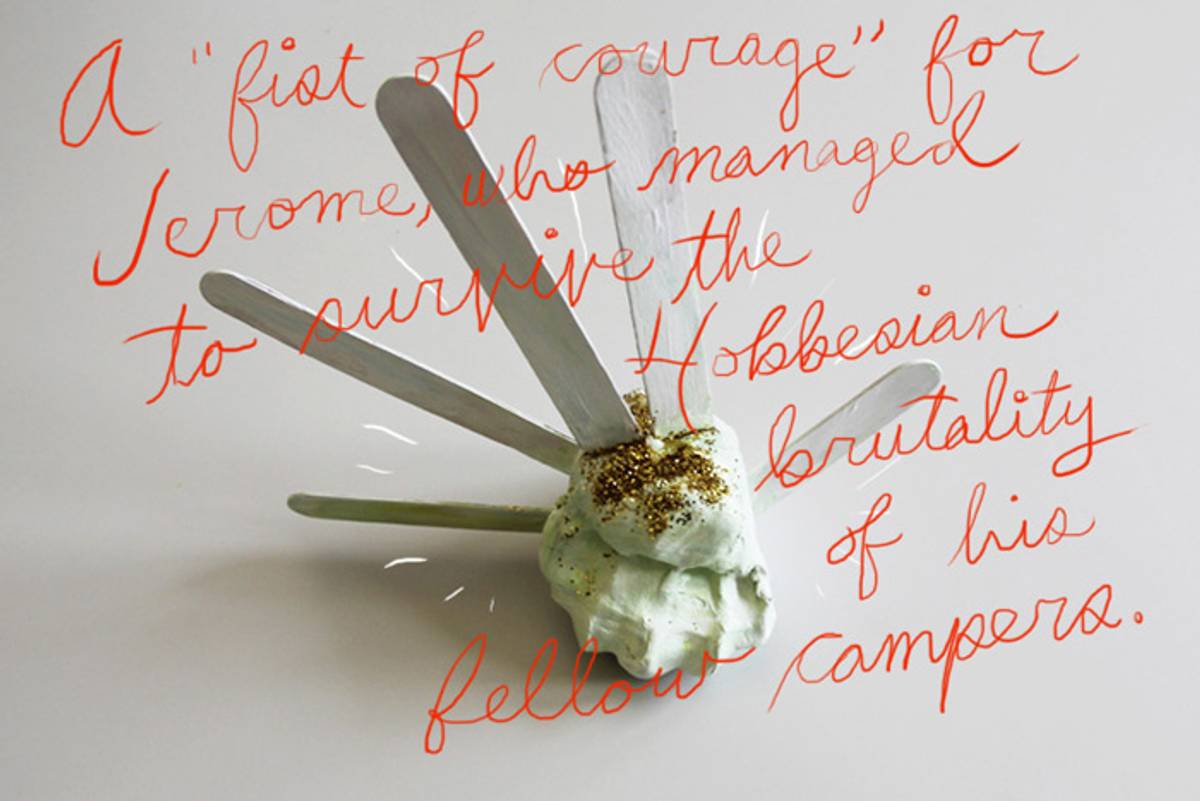 A "fist of courage" for
Jerome, who managed
to survive the
Hobbesian
brutality
of his
fellow campers.